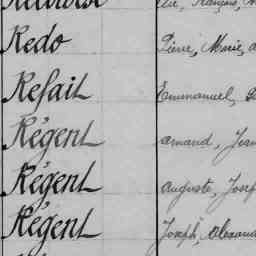 Redo Pierre, Marie,
Refait Emmanuel,
Régent Amand, Jean
Régent Auguste, Josep
Régent Joseph, Alexand